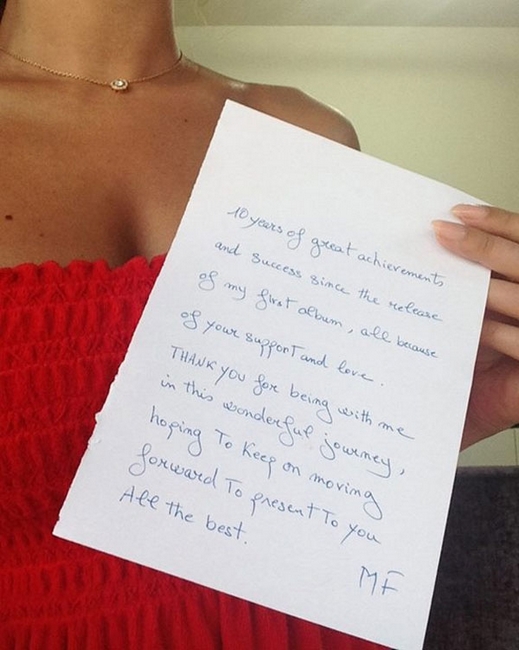 10 years of great achievements
and success since the release
of my first album, all because
of your support and love.
THANK YOU for being with me
in this wonderful journey,
hoping To Keep on moving
forward To present To you
All the best.
MF